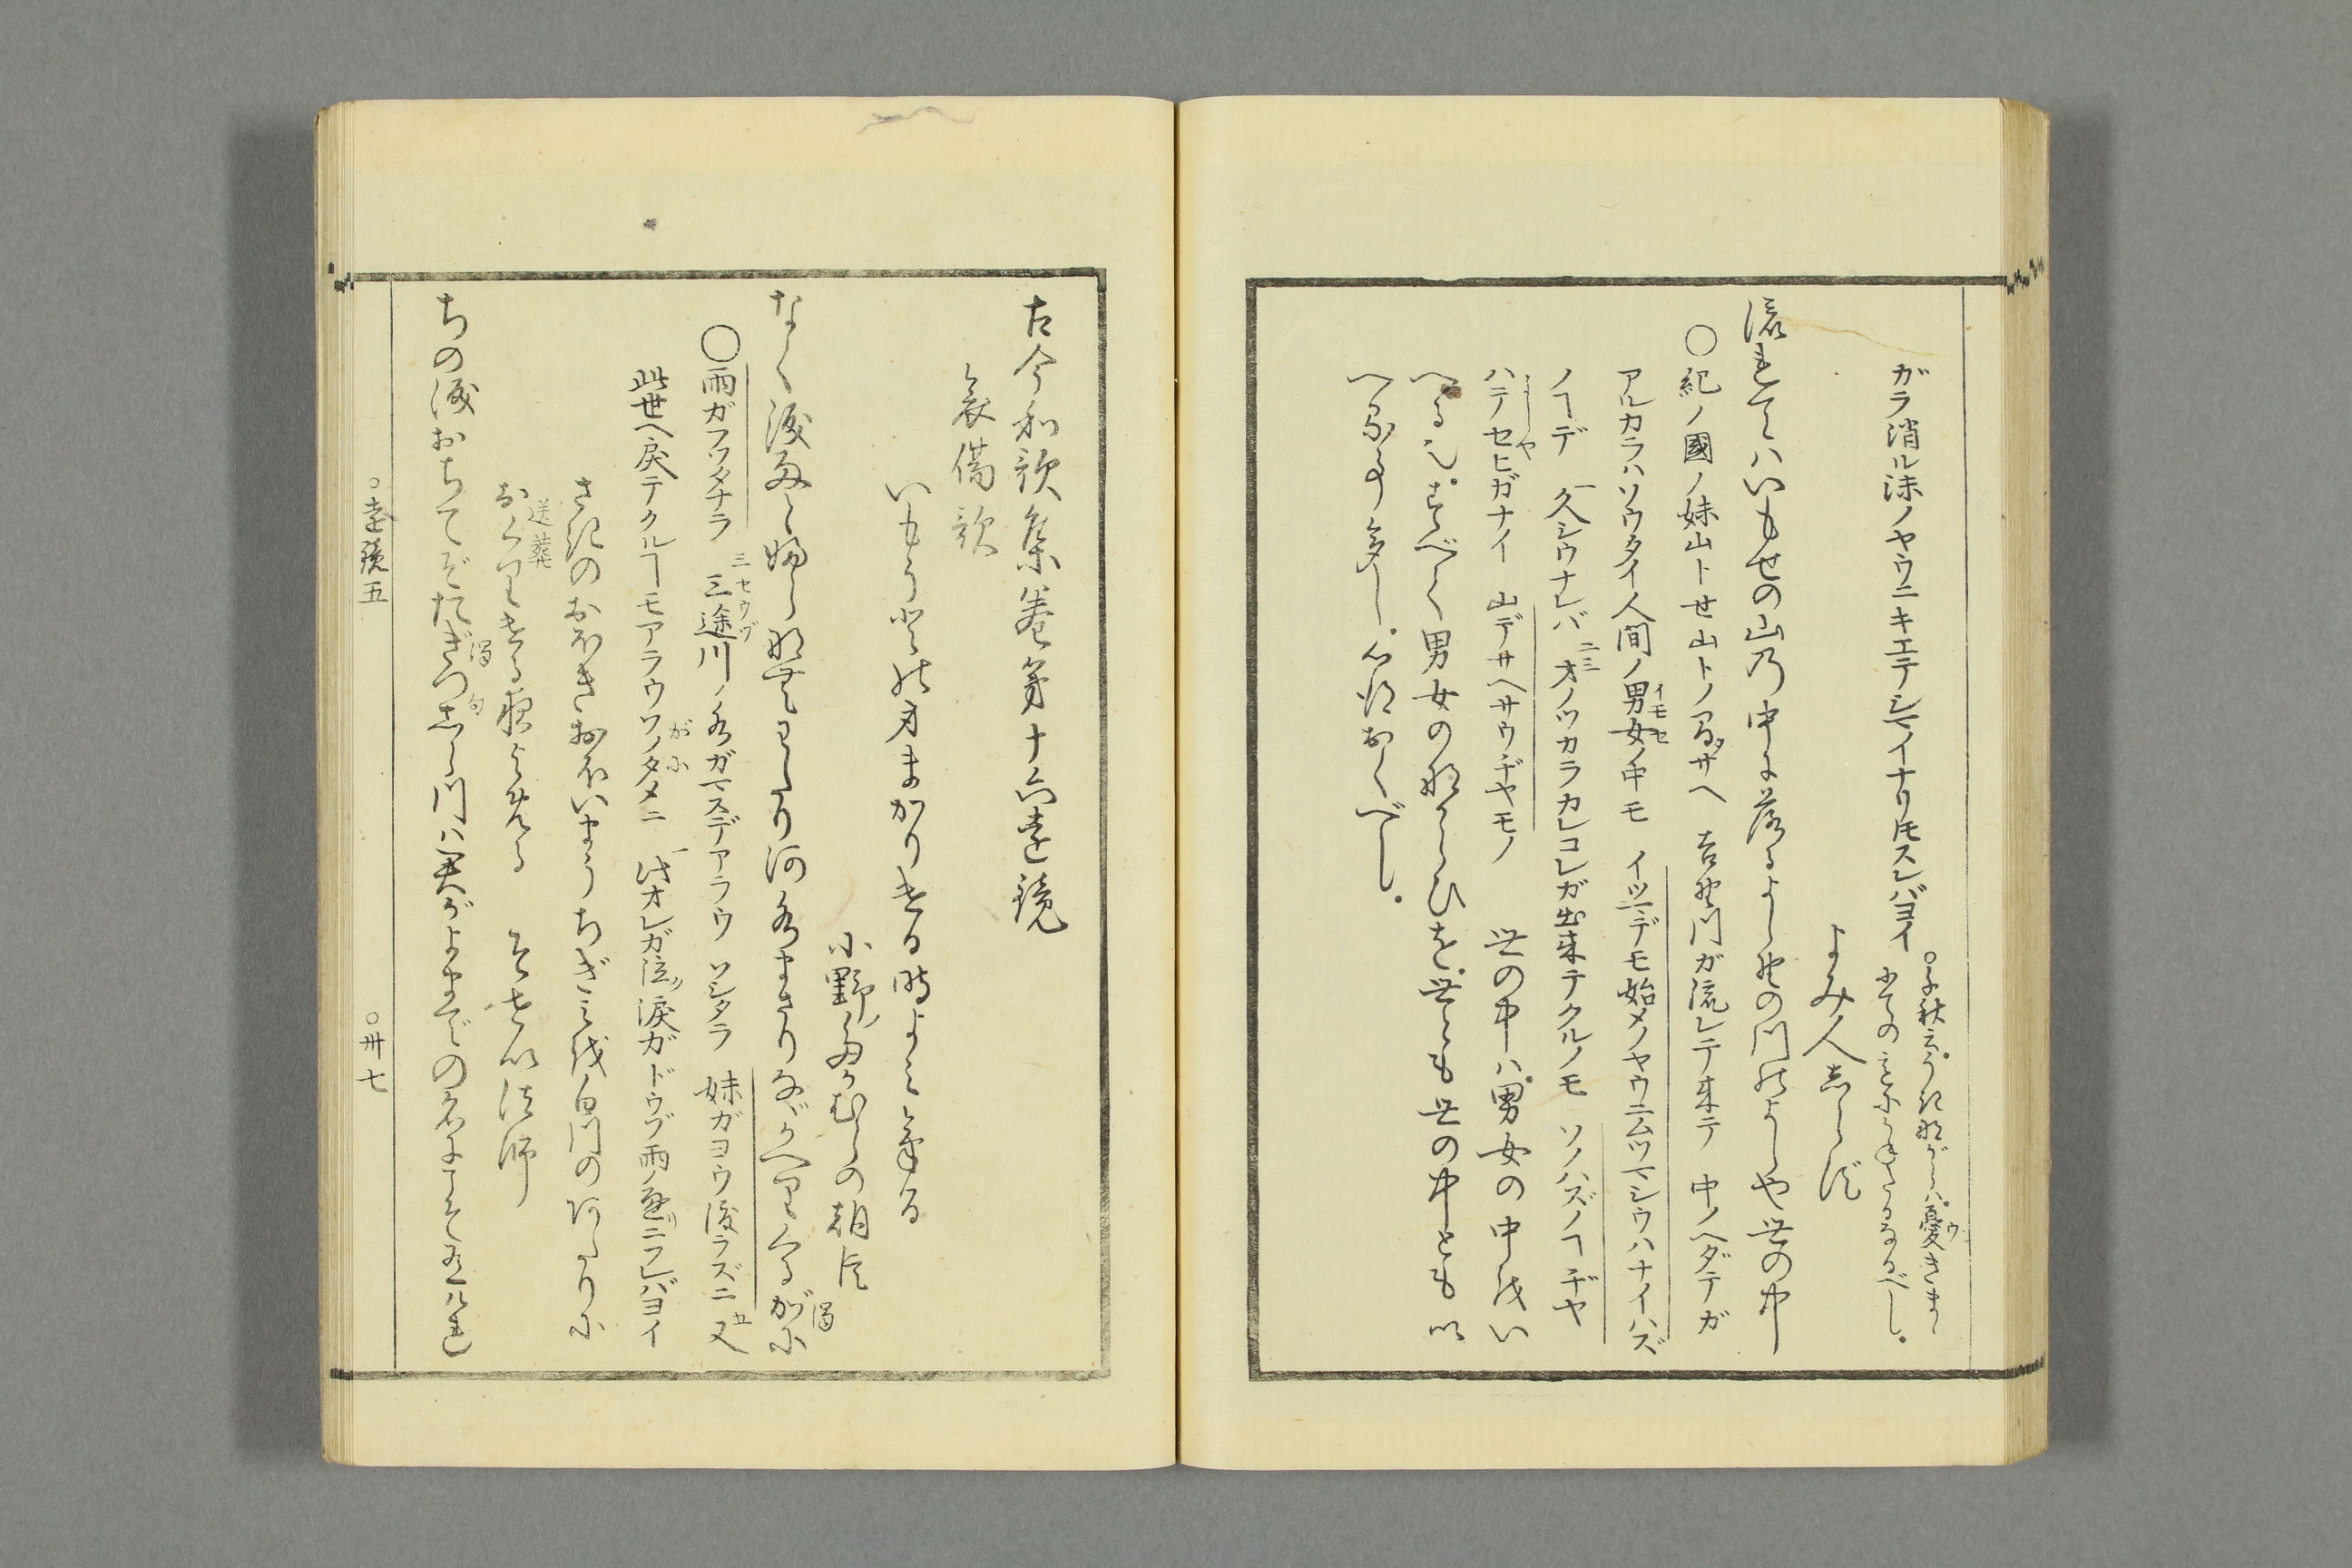 ガラ消ル沫ノヤウニキエテシマイナリトモスレバヨイ
○千秋云。うき
憂きまゝ
ウ
なるべし。
よみ人しらず
流れてハいもせの山の中に落るよしのの川のよしや世の中
○紀ノ國ノ妹山ト世山トノアヒダサヘ 吉野川ガ流レテ来テ 中ノヘダテガ
アルカラハソウタイ人間ノ男女ノ中モ イツマデモ始メノヤウニムツマシウハナイハズ
イモセ
ノヿデ 久シウナレバ オノツカラカレコレガ出来テクルノモ ソノハズノヿヂヤ
一
二三
ハテセヒガナイ 山デサヘサウヂヤモノ 世の中ハ。男女の中をい
よしや
へる也。すべて男女のならひを。世とも世の中ともい
へる事多し。心得おくべし。
古今和歌集巻第十六遠鏡
哀傷歌
いもうとの身まかりける時よみける
小野ノたかむらの朝臣
なく涙雨とふらなむわたり河水まさりなばかへりくるがに
濁
○雨ガフツタナラ 三途川ノ水ガマスデアラウ ソシタラ 妹ガヨウ渡ラズニ又
三
セウヅ
五
此世ヘ戻テクルヿモアラウソノタメニ 此オレガ泣ク涙ガドウゾ雨ノ通リニフレバヨイ
がに
一
さきのおほきおほいまうちぎみを白川のあたりに
おくりける夜よめる そせい法師
送葬
ちの涙おちてぞたぎつしら川ハ君がよまでの名にこそ有けれ
濁
句
○遠鏡五
○卅七